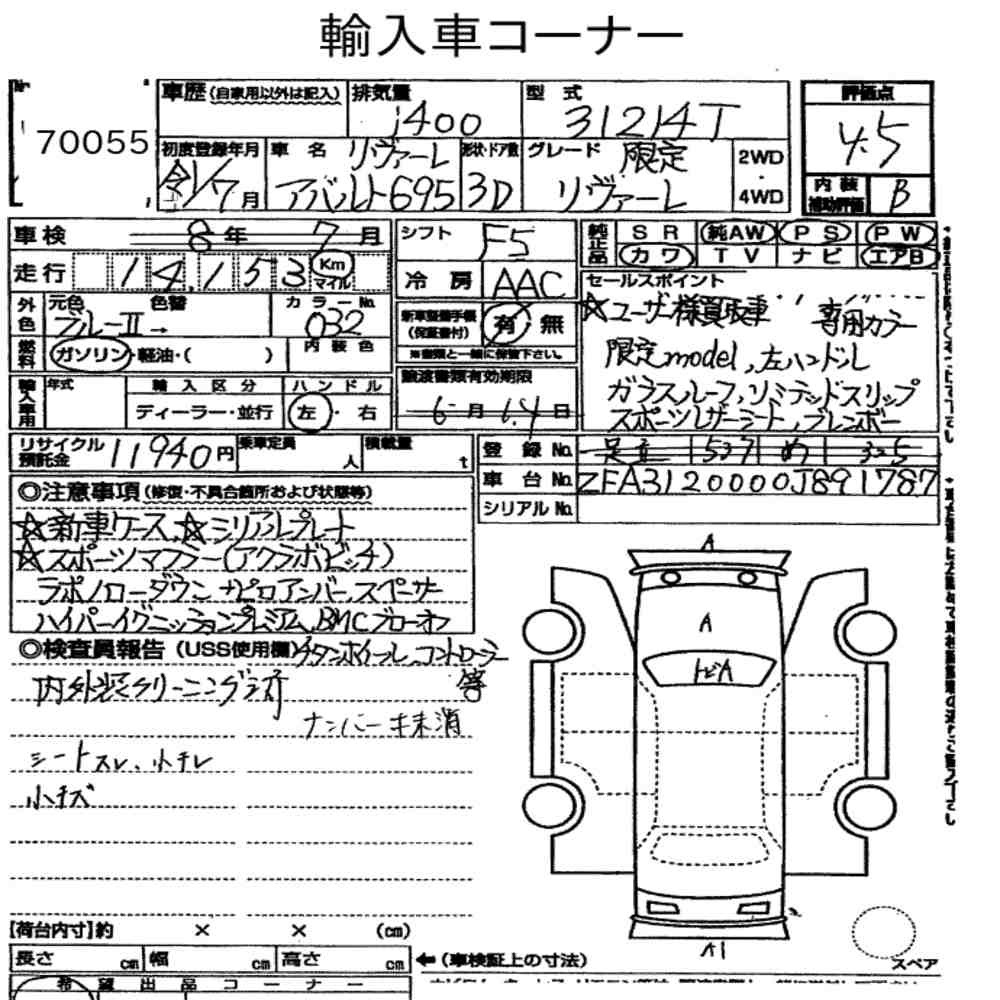 輸入車コーナー
70055
車歴 (自家用以外は記入) 排気量 1400 型式 31214T 評価点 4.5
初度登録年月 令1/7月 車名 リヴァーレ アバルト695 形状・ドア数 3D グレード 限定 リヴァーレ 2WD・4WD 内装補助評価 B
車検 8年 7月 シフト F5 純正品 SR 純AW PS PW
カワ TV ナビ エアB
走行 14,153 Km マイル 冷房 AAC
外色 元色 ブルーII→ 色替 カラーNo. 032 内装色
燃料 ガソリン・軽油・( )
新車整備手帳(保証書付) 有・無
※書類と一緒に保管下さい。
セールスポイント
☆ユーザー様買取車 専用カラー
限定model,左ハンドル
ガラスルーフ,リミテッドスリップ
スポーツレザーシート,ブレンボー
輸入車用 年式 輸入区分 ディーラー・並行 ハンドル 左・右
譲渡書類有効期限 6月14日
リサイクル預託金 11940円 乗車定員 人 積載量 t
登録No. 足立 537 め 325
車台No. ZFA3120000J891787
シリアルNo.
◎注意事項 (修復・不具合箇所および状態等)
☆新車ケース,☆シリアルプレート
☆スポーツマフラー(アクラポビッチ)
ラポノローダウン ナピロアンバースペーサー
ハイパーイグニッションプレミアム,BMCブローオフ
◎検査員報告 (USS使用欄) チタンホイール,コントローラー
内外装クリーニング済 等
ナンバー 未消
シートスレ、小キレ
小キズ
A
A
トビA
A1
スペア
【荷台内寸】約 × × (cm)
長さ cm 幅 cm 高さ cm ←(車検証上の寸法)
希望出品コーナー